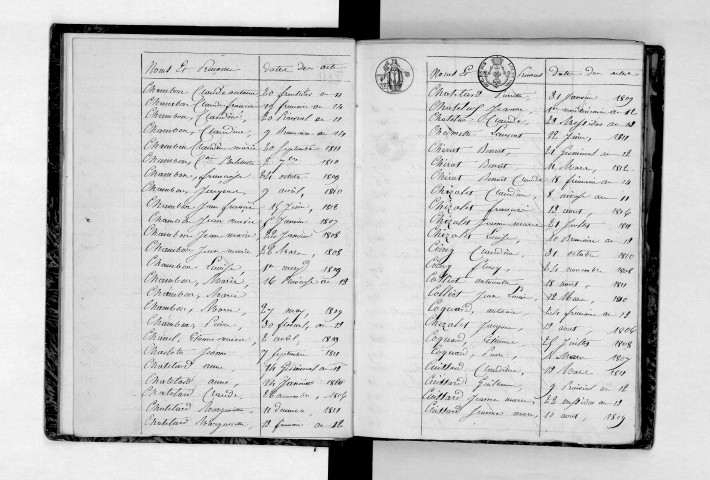 Noms Et Prenoms dates des actes
Chambon Claude antoine 20 fructidor an 11
Chambon Claude francois 19 frimaire an 14
Chambon, Claudine, 20 Pluviose an 11
Chambon, Claudine, 9 Brumaire an 14
Chambon Claudine marie 20 Septembre 1811
Chambon, 2 7bre 1810
Chambon, françoise 24 octobre 1809
Chambon, Jacques 9 avril, 1810
Chambon Jean françois 15 Juin, 1812
Chambon Jean marie Janvier 1807
Chambon Jean marie 22 Janvier 1808
Chambon Jean marie 29 Mars, 1808
Chambon Louise 1er may 1809
Chambon, Marie, 16 an 13
Chambon, Marie
Chambon, Marie 27 may, 1809
Chambon, Pierre, 30 floreal, an 13
2 avril, 1809
Charlotte Jeanne 7 Septembre 1811
Chatelard anne, 24 Germinal an 12
Chatelard anne, 24 Janvier 1810
Chatelard Claude, 1806
Chatelard Marguerite 11 1811
Chatelard Marguerite 13 frimaire an 12
Noms Et Prenoms dates des actes
Chatelard 31 Janvier 1809
Jeanne, 1er vendemiaire an 12
Claudine 23 Messidor an 13
Laurent 12 Juin, 1811
Chirat Benoit, 20 Germinal an 12
Chirat Benoit 11 Mars, 1812
Chirat Benoit Claude 18 frimaire an 14
Chizalet Claudine, 8 nivose an 11
Chizalet françois 12 aout, 1806
Chizalet Jeanne marie 21 Juillet 1811
Chizalet Louise, 20 Brumaire an 13
Claudine, 31 octobre 1810
24 novembre 1808
Collict antoinette 18 aout, 1811
Collict Jean Louis, 22 Mars, 1810
Coquard, antoine, 24 frimaire an 13
Chizalet Jacques 12 aout, 1806
Coquard, Etienne, 25 Juillet 1808
Coquard, Pierre, 2 Mars, 1807
Cuittard Claudine, 12 Mars 1811
Cuittard Guillaume, 9 Pluviose an 12
Cuittard Jeanne marie, 22 Messidor an 13
Cuittard Jeanne marie, 10 aout, 1809